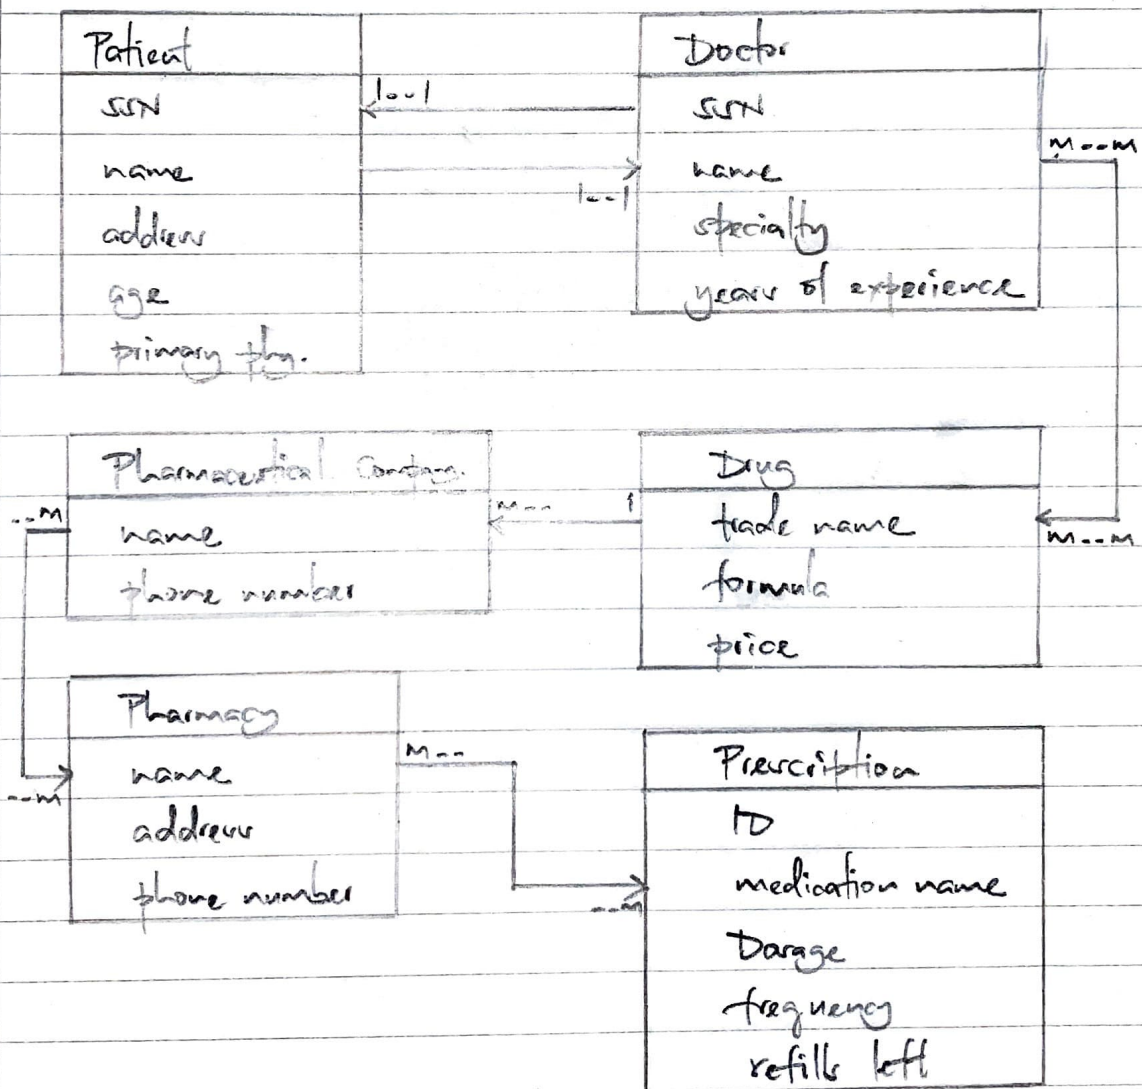 Patient
SSN
name
address
age
primary phy.
1..1
1..1
Doctor
SSN
name
specialty
years of experience
M..M
M..M
Pharmaceutical Company.
name
phone number
..M
M..
1
Drug
trade name
formula
price
Pharmacy
name
address
phone number
..M
M..
..M
Prescription
ID
medication name
Dosage
frequency
refills left